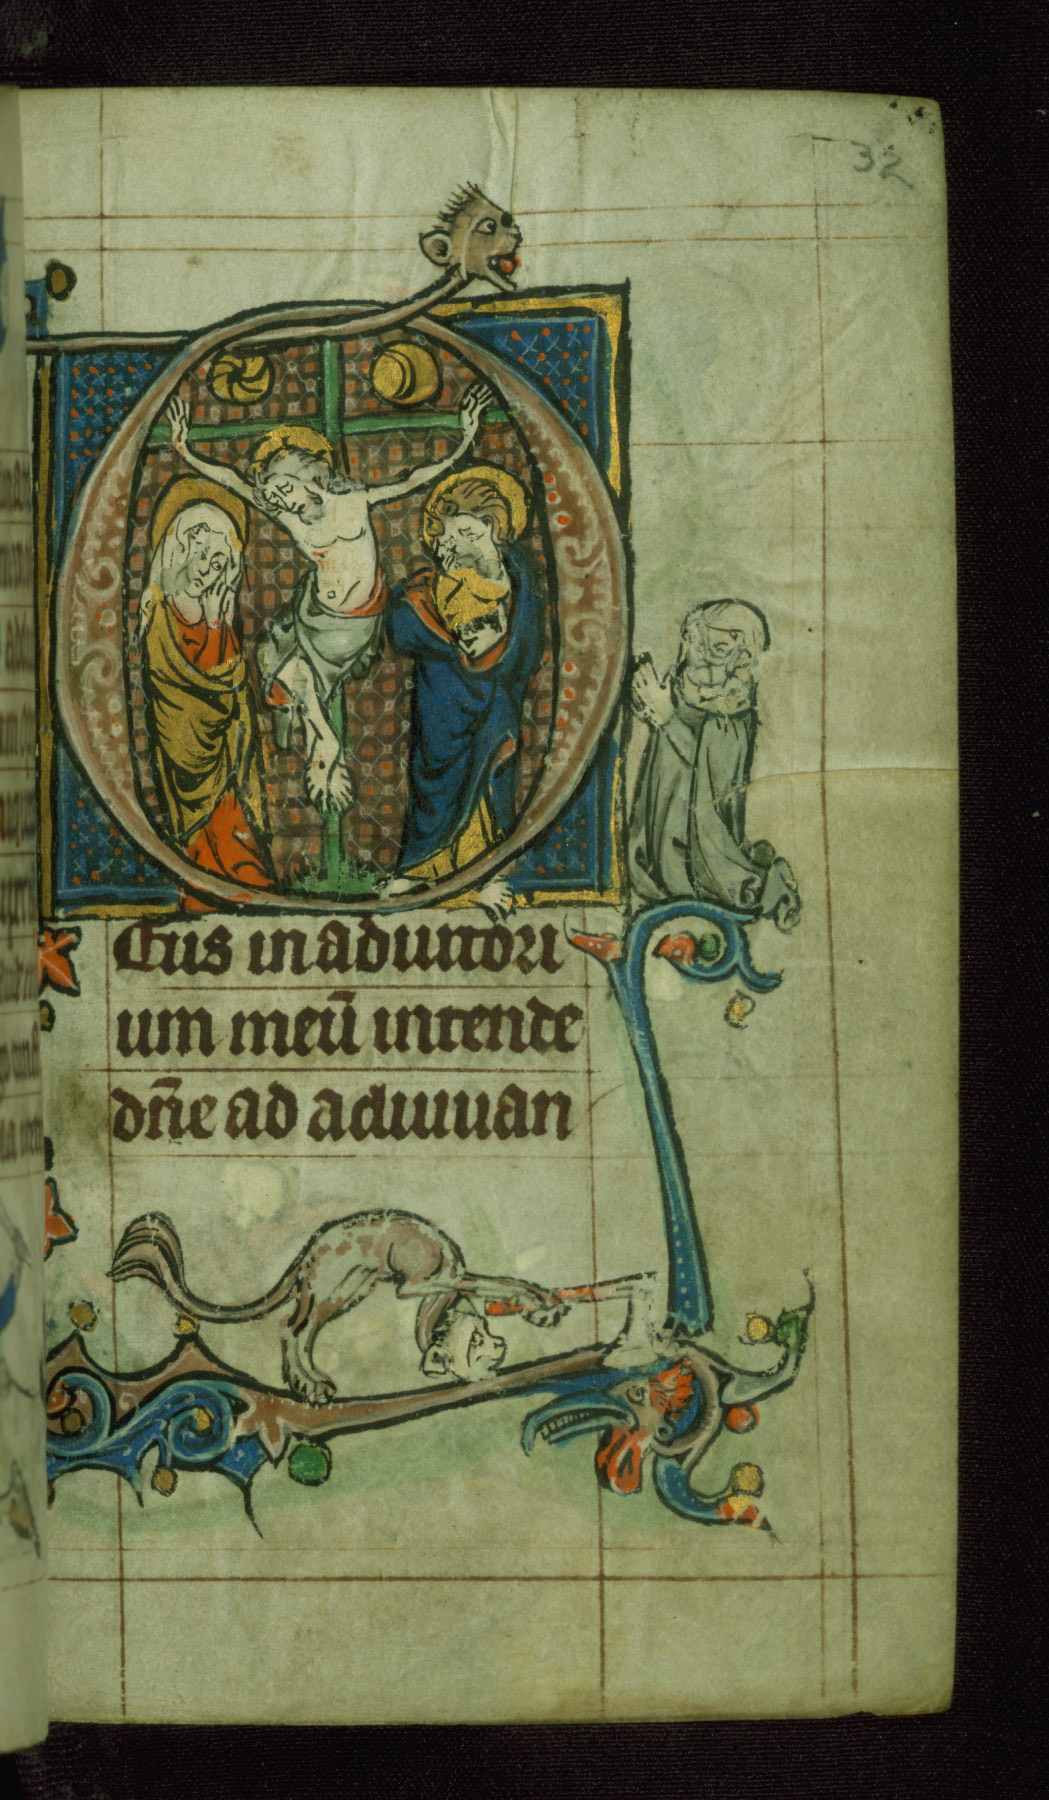 32
Eus in adiutori
um meū intende
dn̄e ad adiuuan